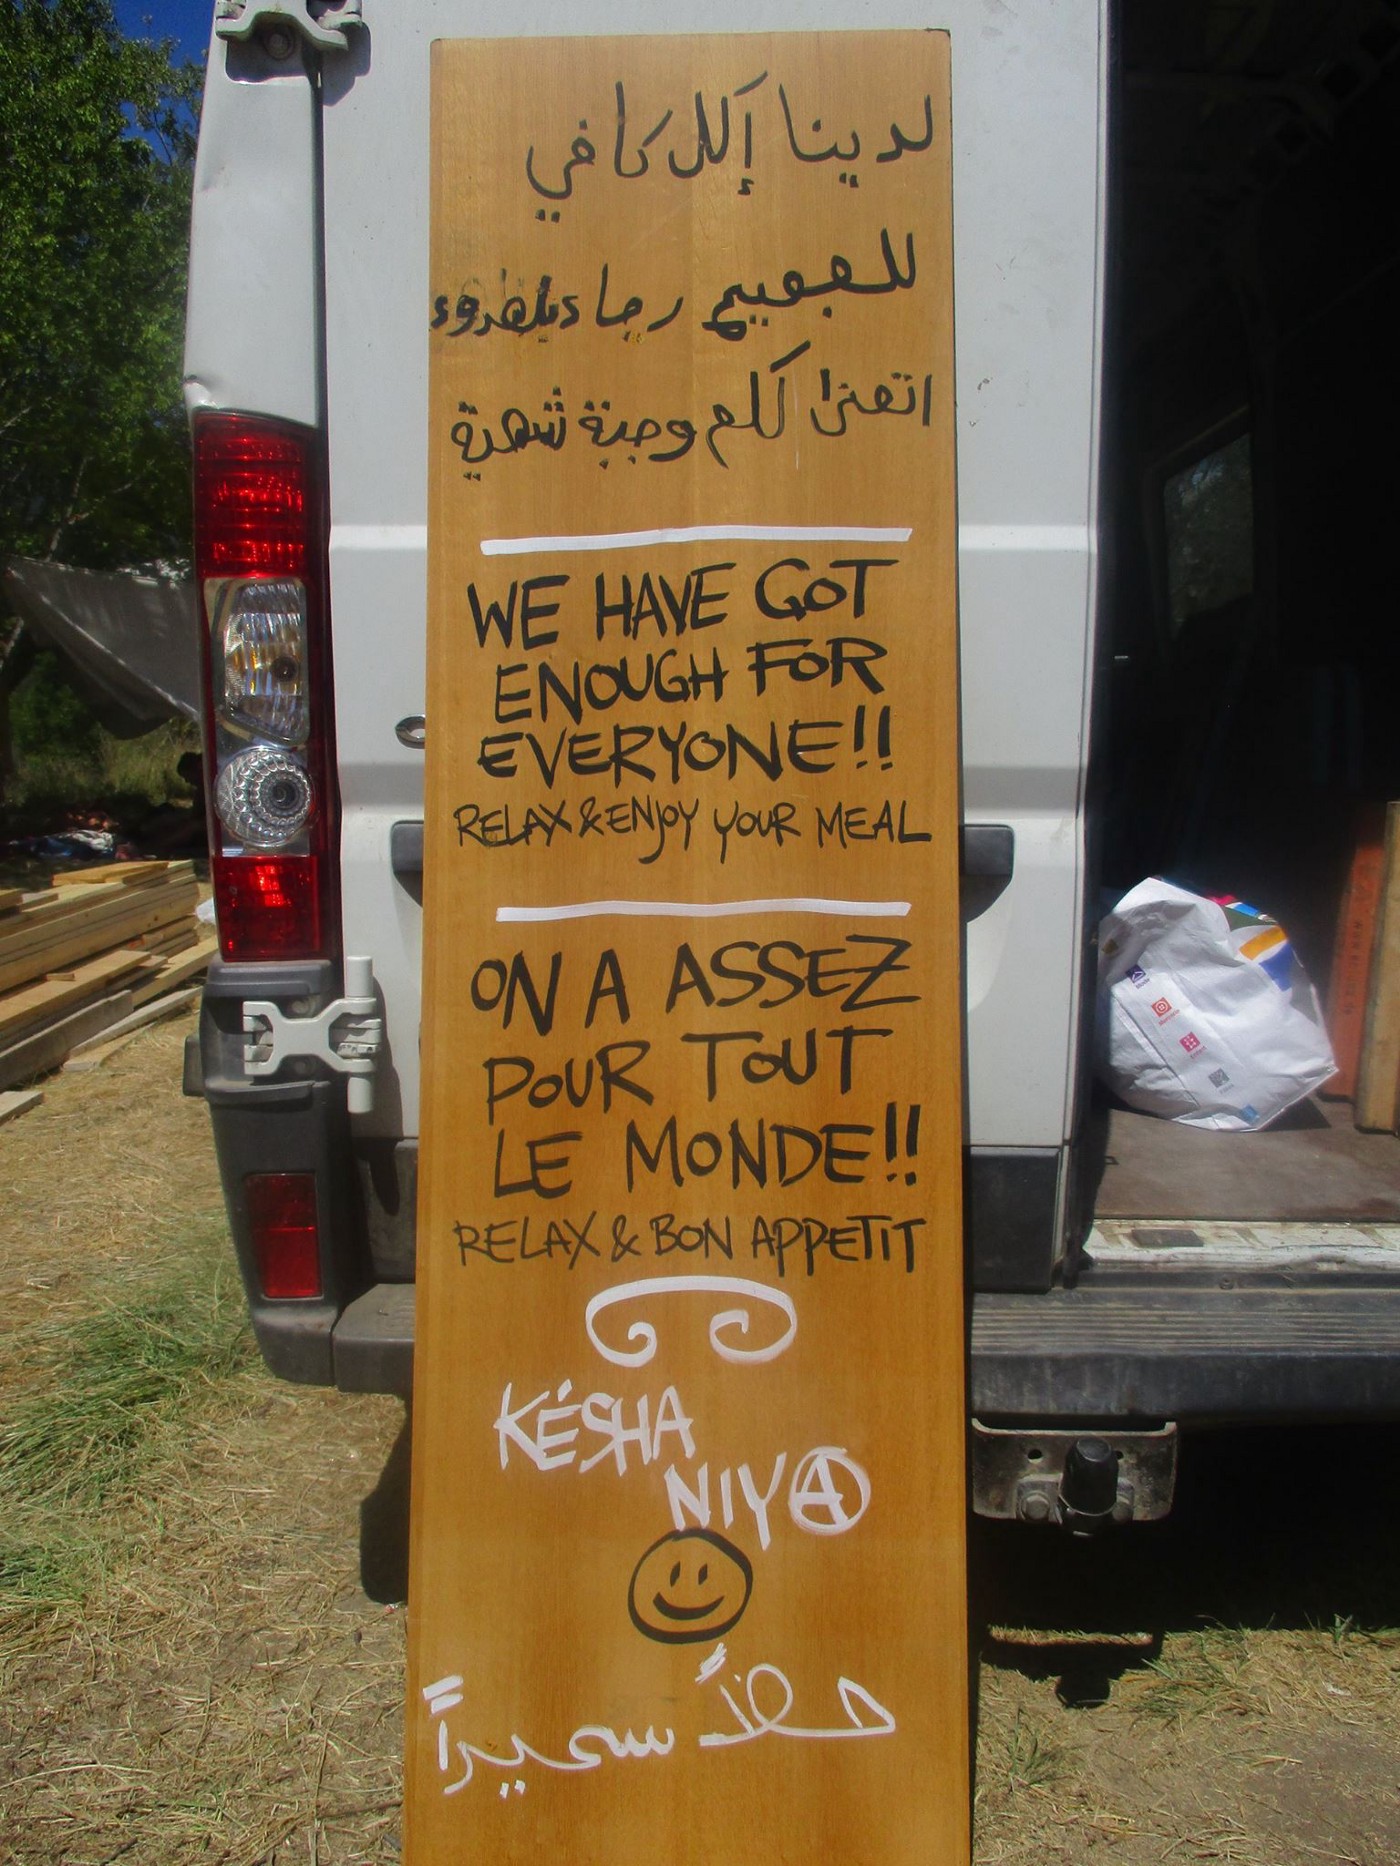 لدينا إكل كافي
للجميع رجاء بلهدوء
اتمنئ لكم وجبة شهية
WE HAVE GOT
ENOUGH FOR
EVERYONE!!
RELAX & ENJOY YOUR MEAL
ON A ASSEZ
POUR TOUT
LE MONDE!!
RELAX & BON APPETIT
KÉSHA
NIYA
حظاً سعيداً